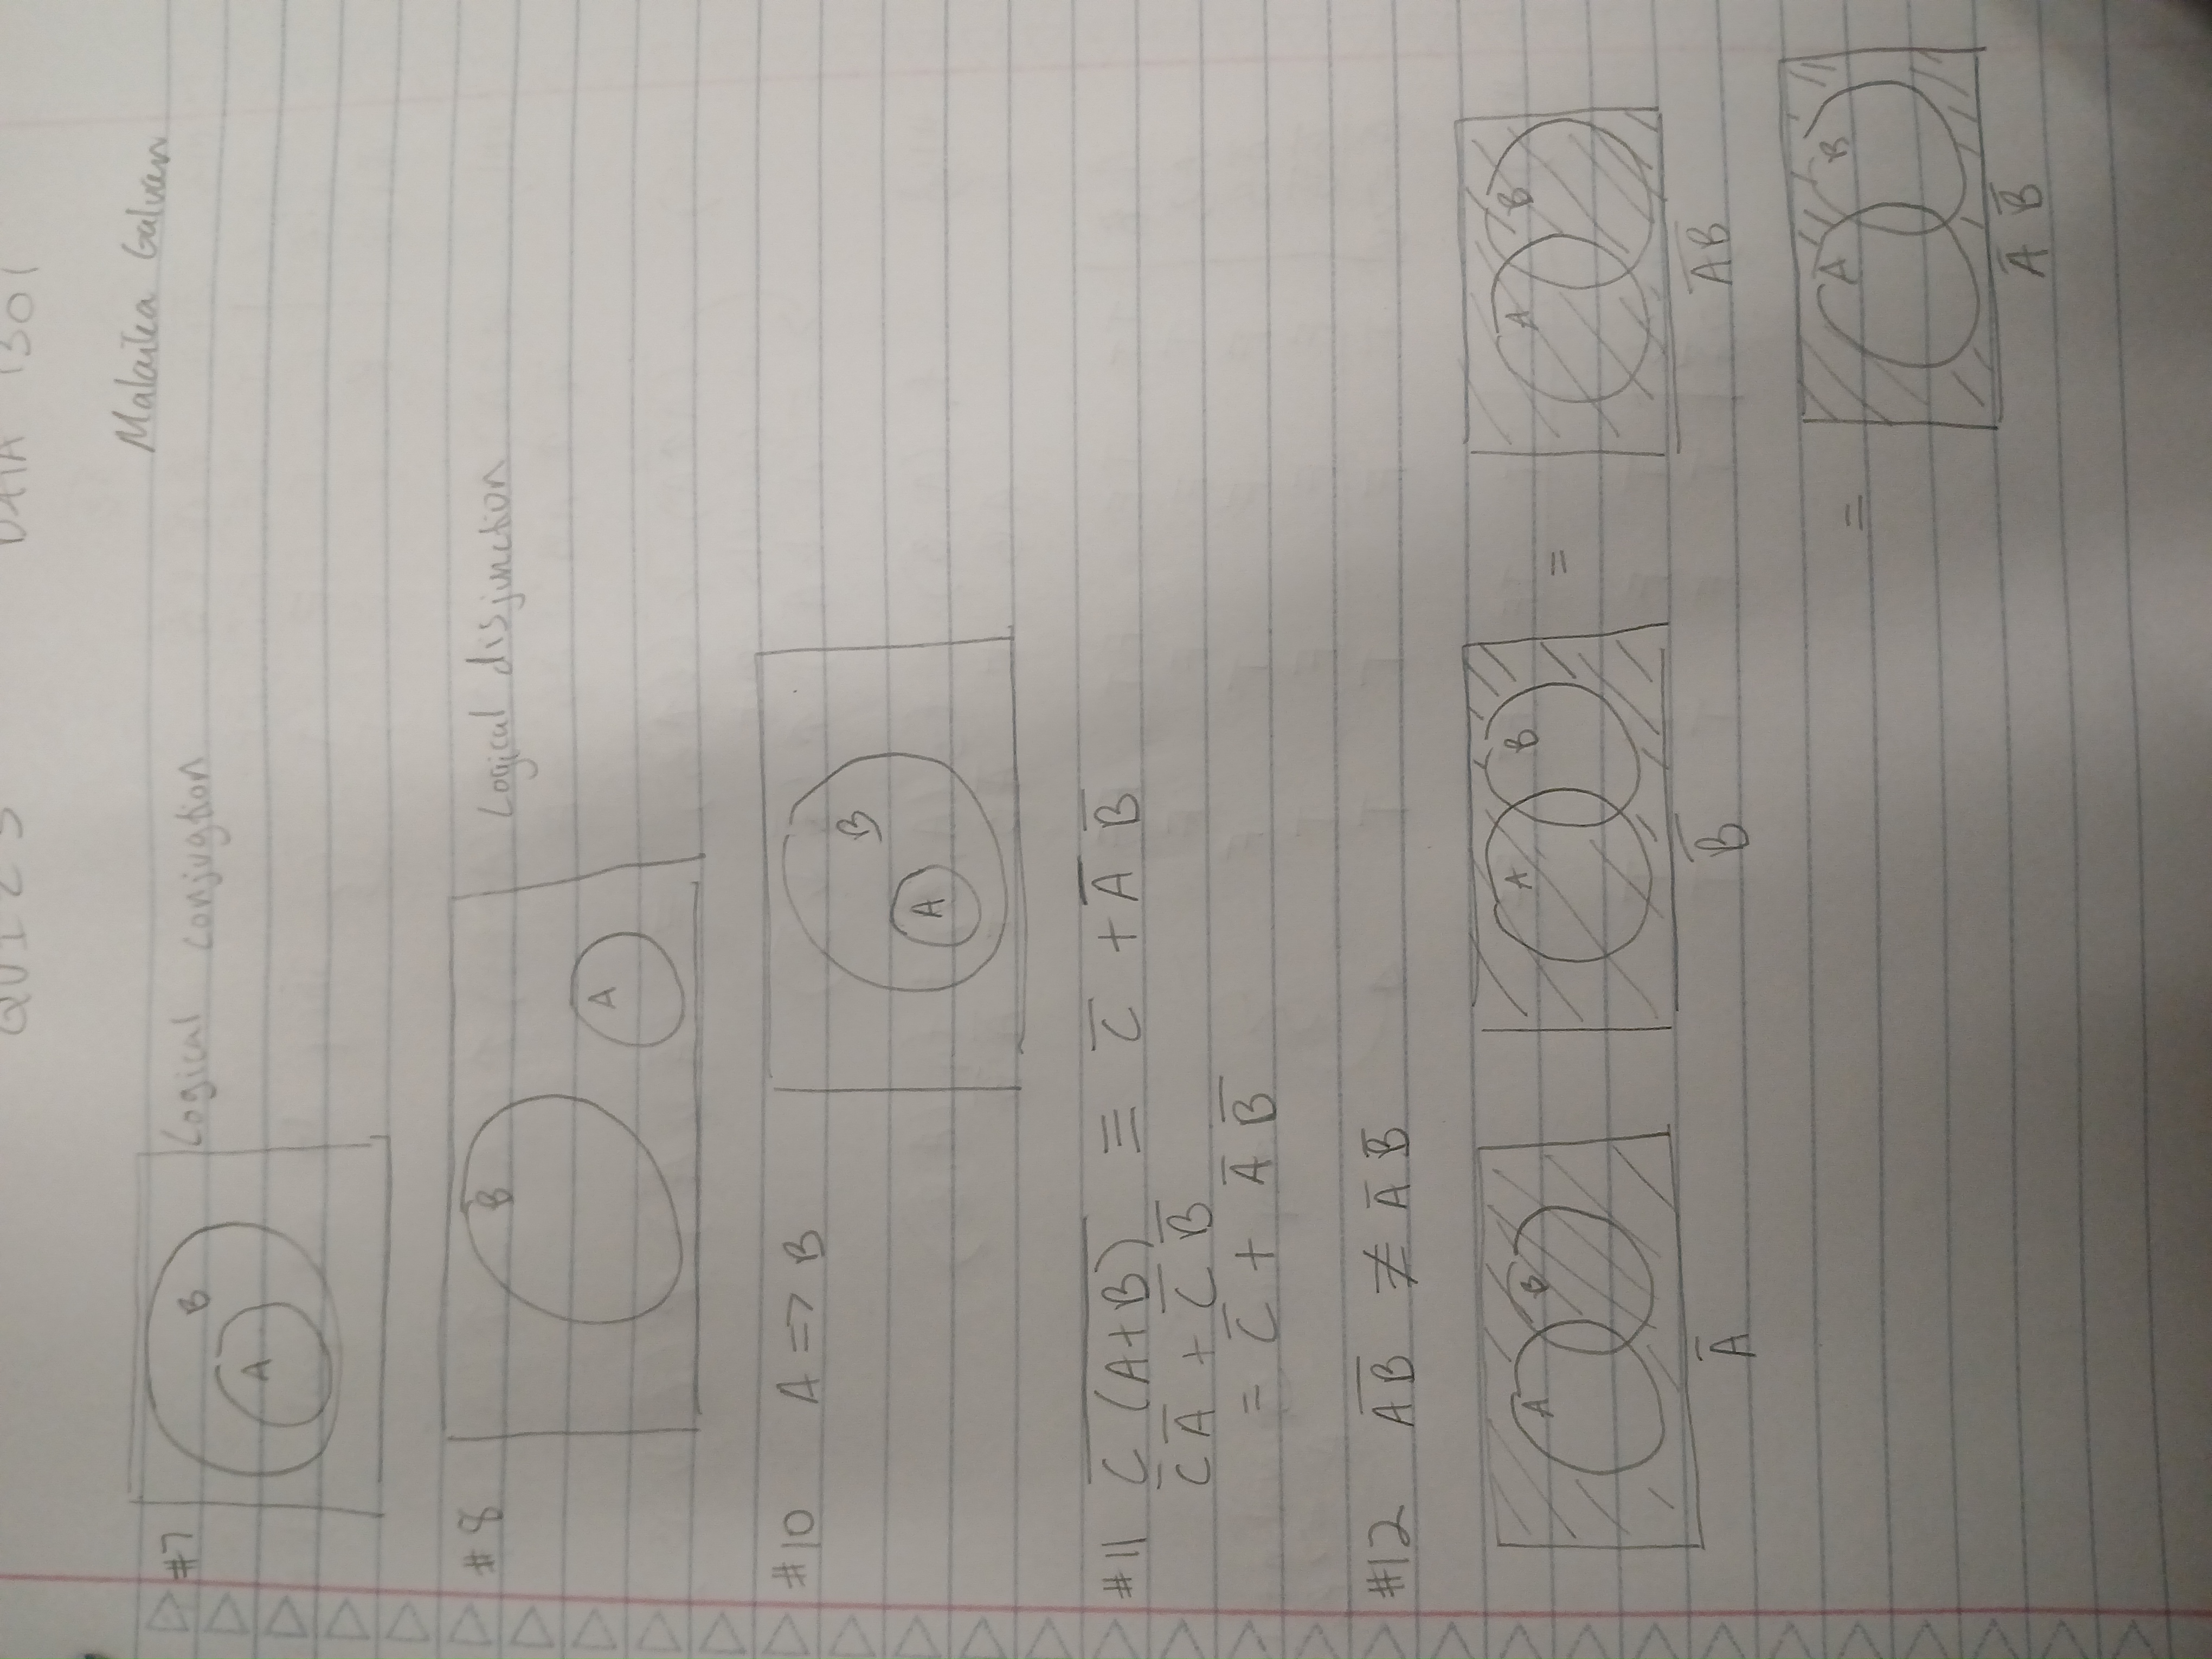 QUIZ 3 DATA 1301
Malaika Galvan
#7 B Logical conjugtion
A
#8 B Logical disjunction
A
#10 A => B
B
A
#11 \overline{C (A+B)} ≡ C̅ + A̅ B̅
C̅ A̅ + C̅ B̅
= C̅ + A̅ B̅
#12 \overline{AB} ≢ A̅ B̅
A B A B = A B
A̅ B̅ \overline{AB}
= A B
A̅ B̅